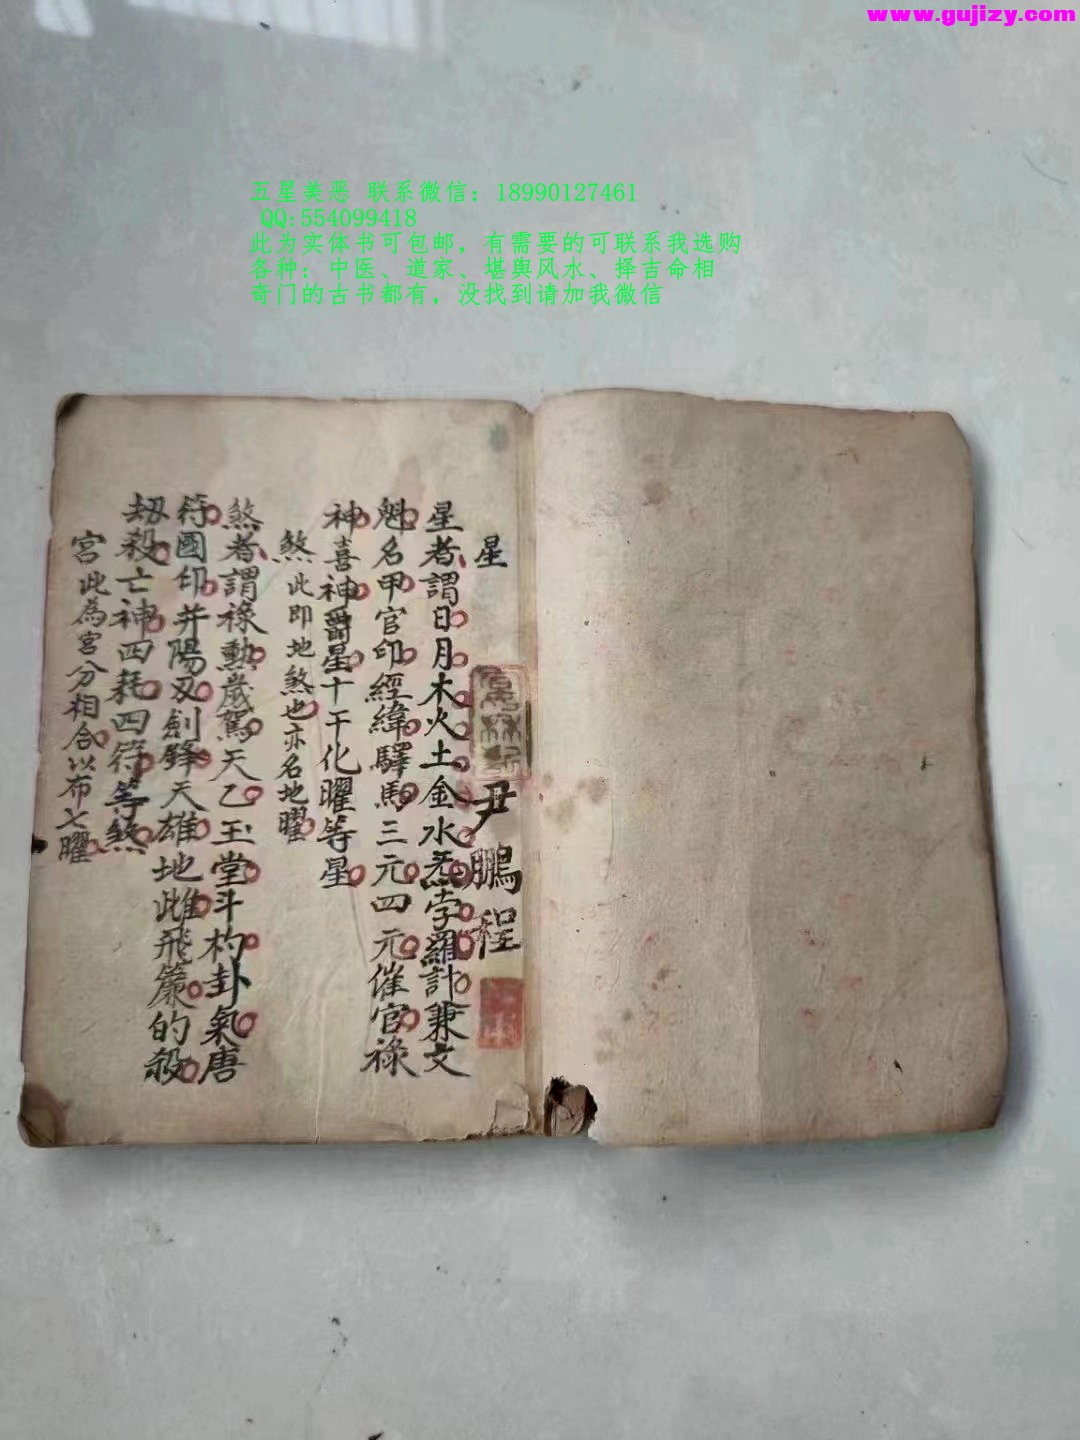 www.gujizy.com
五星美恶 联系微信：18990127461
QQ:554099418
此为实体书可包邮，有需要的可联系我选购
各种：中医、道家、堪舆风水、择吉命相
奇门的古书都有，没找到请加我微信
星
尹鵬程
星者謂日月木火土金水炁孛羅計兼文
魁名甲官印經緯驛馬三元四元催官祿
神喜神爵星十干化曜等星
煞 此即地煞也亦名地曜
煞者謂祿勲歲駕天乙玉堂斗杓卦氣唐
符國印并陽刃劍鋒天雄地雌飛簾的殺
劫殺亡神四耗四符等煞
宮 此為宮分相合以布七曜